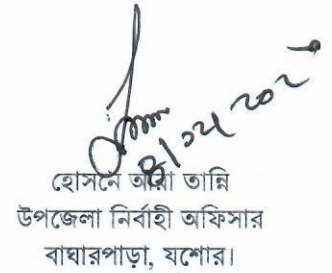 হোসনে আরা তান্নি
উপজেলা নির্বাহী অফিসার
বাঘারপাড়া, যশোর।